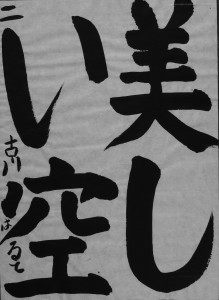 美し
い空
二 古川はるて